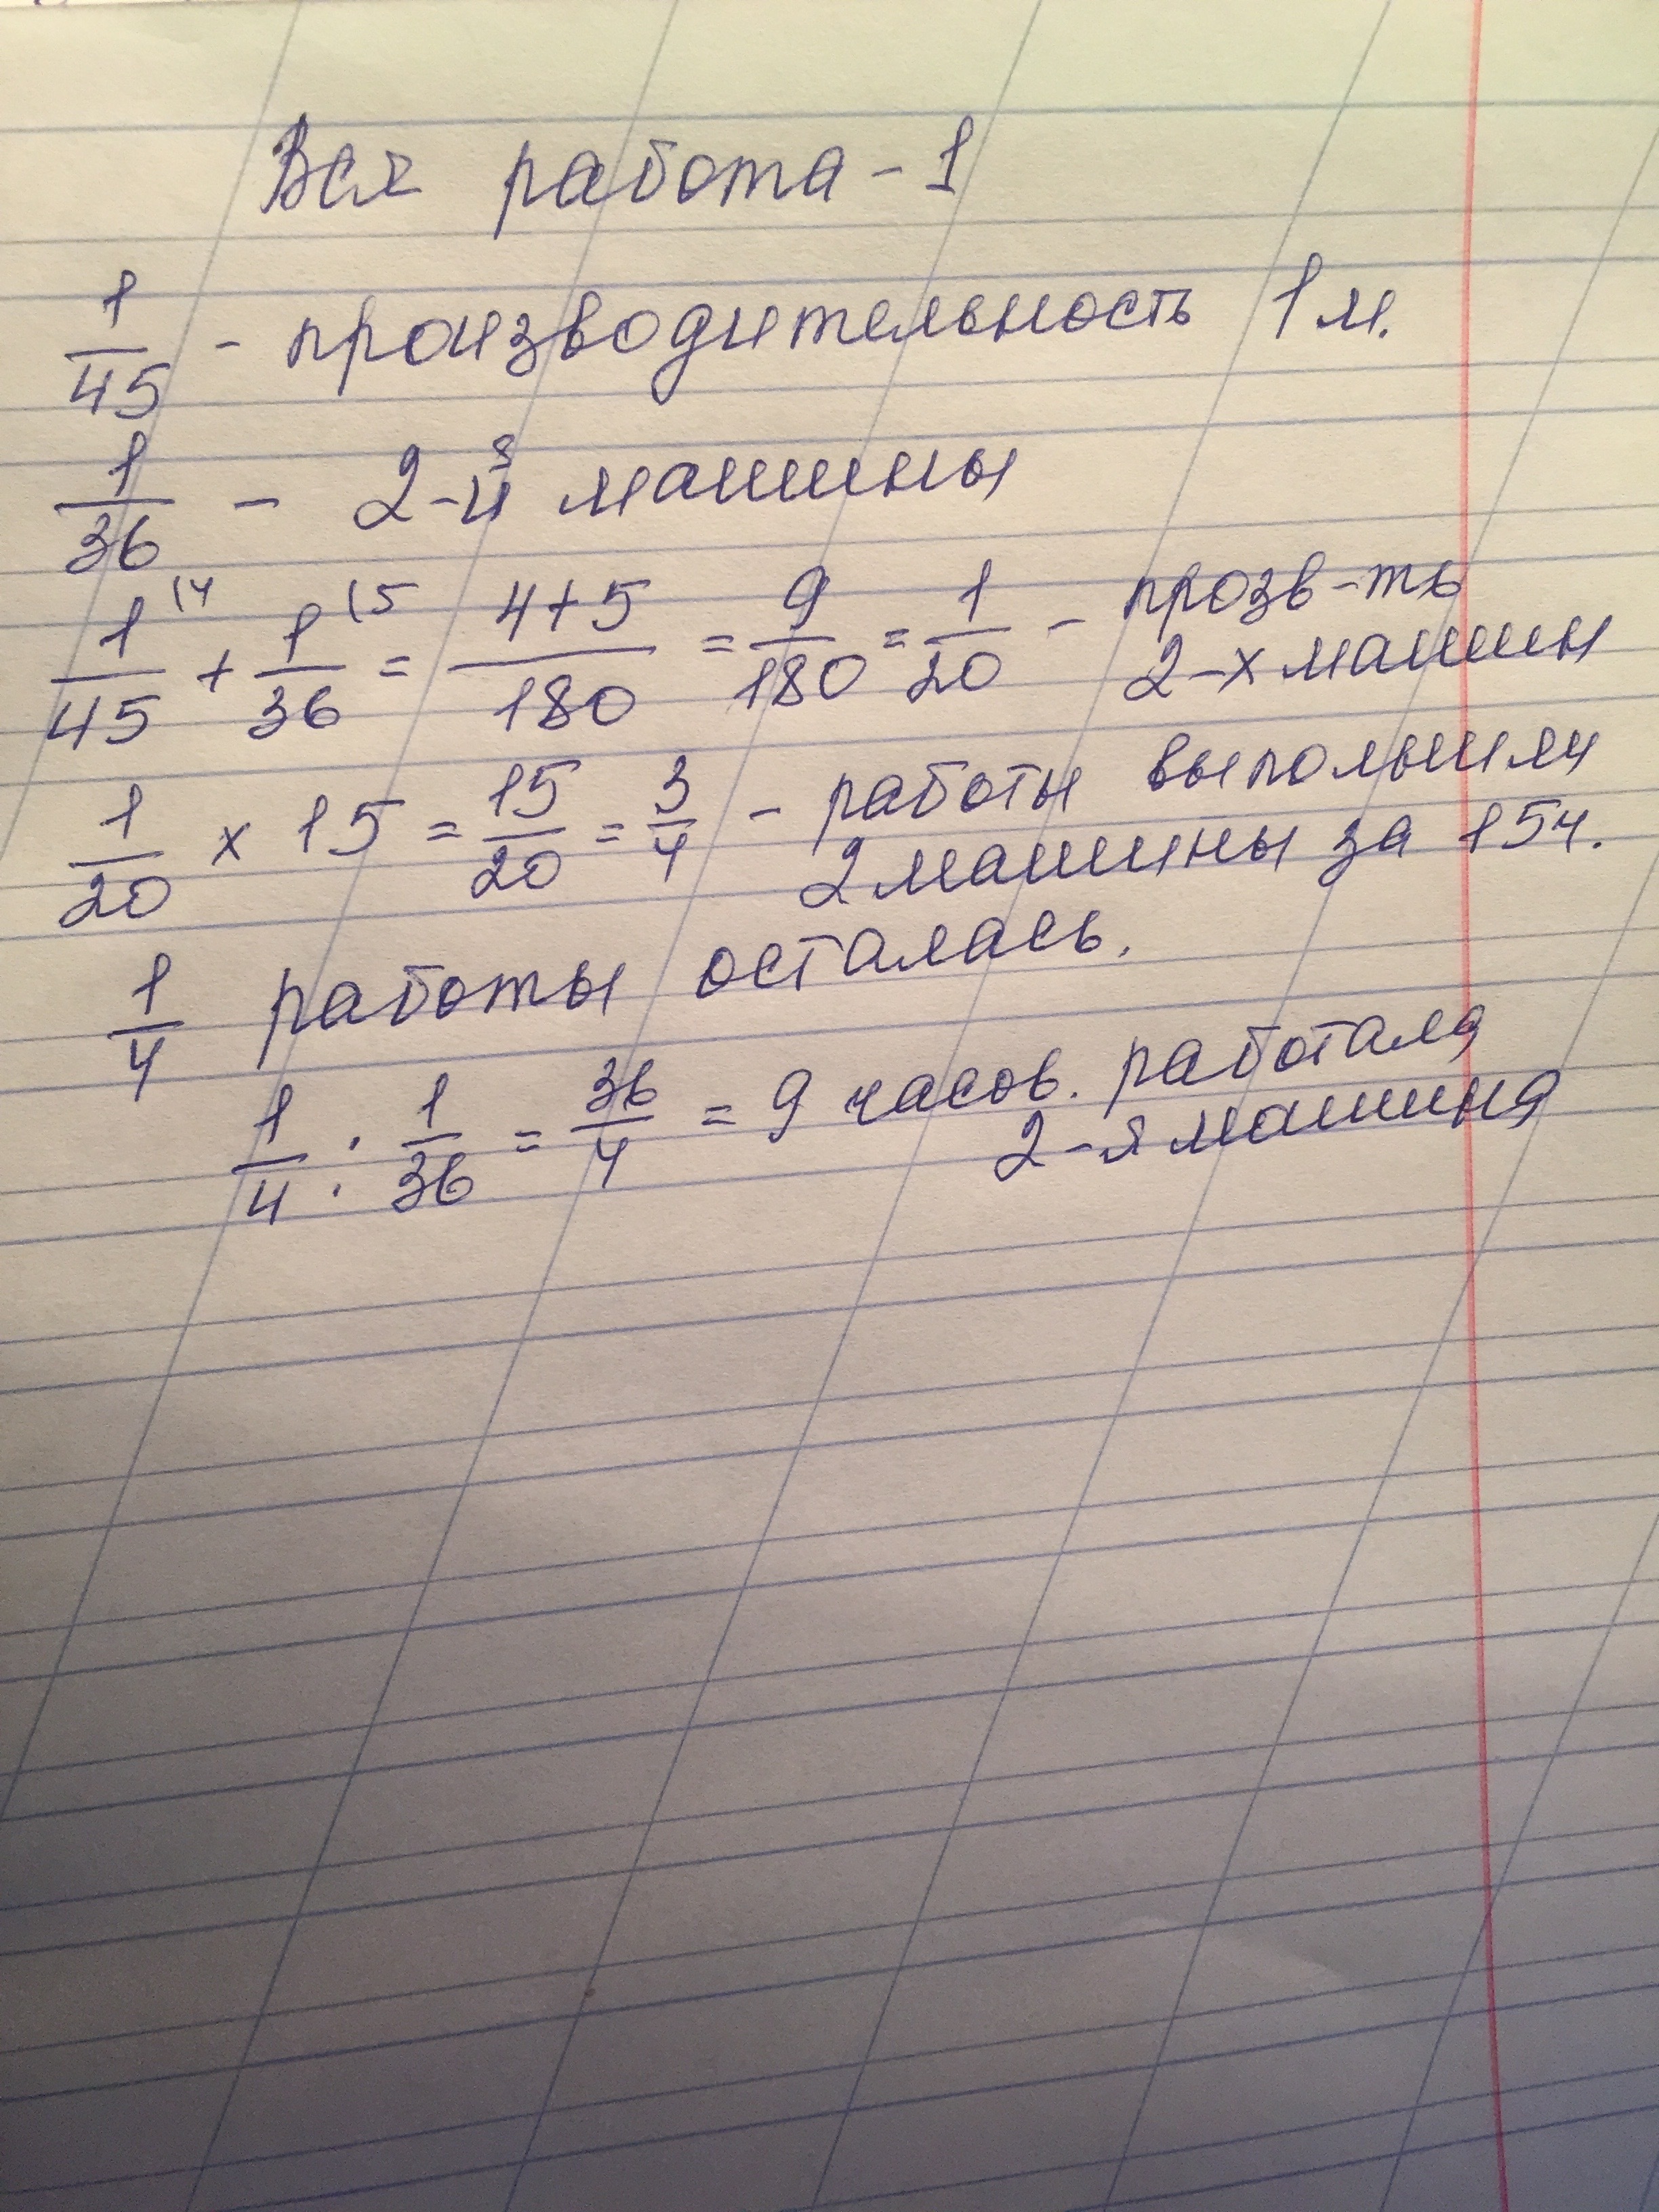 Вся работа - 1
1/45 - производительность 1 м.
1/36 - 2-й машины
1/45 \4 + 1/36 \5 = 4+5/180 = 9/180 = 1/20 - прозв-ть
2-х машин
1/20 x 15 = 15/20 = 3/4 - работы выполнили
2 машины за 15ч.
1/4 работы осталась.
1/4 : 1/36 = 36/4 = 9 часов. работала
2-я машина